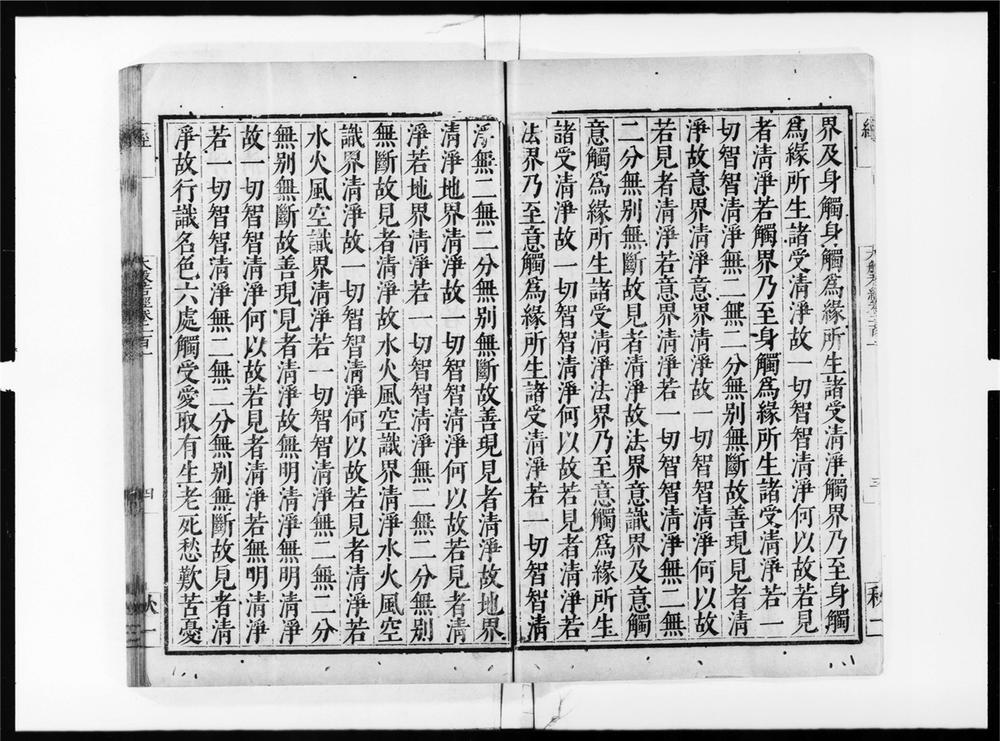 界及身觸身觸爲緣所生諸受清淨觸界乃至身觸
爲緣所生諸受清淨故一切智智清淨何以故若見
者清淨若觸界乃至身觸爲緣所生諸受清淨若一
切智智清淨無二無二分無别無斷故善現見者清
淨故意界清淨意界清淨故一切智智清淨何以故
若見者清淨若意界清淨若一切智智清淨無二無
二分無别無斷故見者清淨故法界意識界及意觸
意觸爲緣所生諸受清淨法界乃至意觸爲緣所生
諸受清淨故一切智智清淨何以故若見者清淨若
法界乃至意觸爲緣所生諸受清淨若一切智智清
淨無二無二分無别無斷故善現見者清淨故地界
清淨地界清淨故一切智智清淨何以故若見者清
淨若地界清淨若一切智智清淨無二無二分無别
無斷故見者清淨故水火風空識界清淨水火風空
識界清淨故一切智智清淨何以故若見者清淨若
水火風空識界清淨若一切智智清淨無二無二分
無别無斷故善現見者清淨故無明清淨無明清淨
故一切智智清淨何以故若見者清淨若無明清淨
若一切智智清淨無二無二分無别無斷故見者清
淨故行識名色六處觸受愛取有生老死愁歎苦憂
經
大般若經卷二百一
四